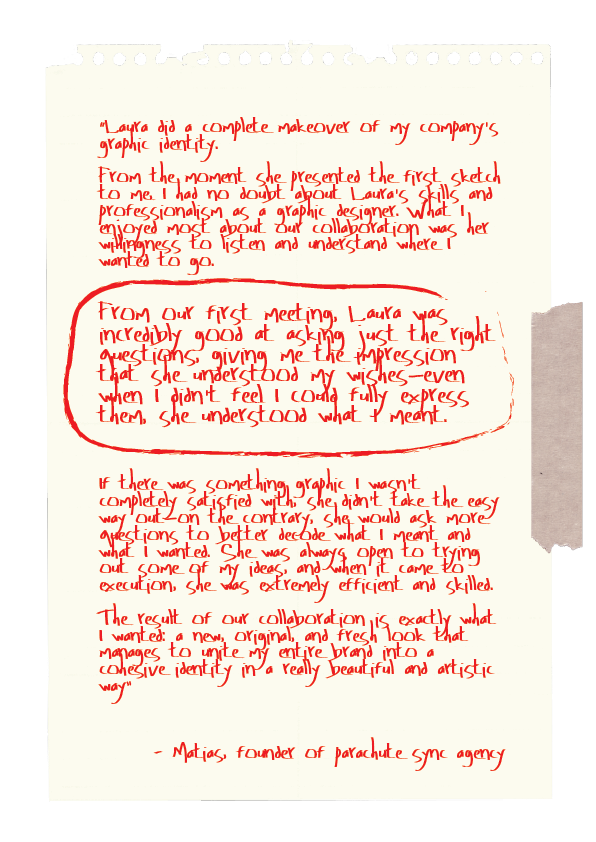 "Laura did a complete makeover of my company's
graphic identity.
From the moment she presented the first sketch
to me, I had no doubt about Laura's skills and
professionalism as a graphic designer. What I
enjoyed most about our collaboration was her
willingness to listen and understand where I
wanted to go.
From our first meeting, Laura was
incredibly good at asking just the right
questions, giving me the impression
that she understood my wishes—even
when I didn't feel I could fully express
them, she understood what I meant.
If there was something graphic I wasn't
completely satisfied with, she didn't take the easy
way out—on the contrary, she would ask more
questions to better decode what I meant and
what I wanted. She was always open to trying
out some of my ideas, and when it came to
execution, she was extremely efficient and skilled.
The result of our collaboration is exactly what
I wanted: a new, original, and fresh look that
manages to unite my entire brand into a
cohesive identity in a really beautiful and artistic
way"
- Matias, founder of parachute sync agency